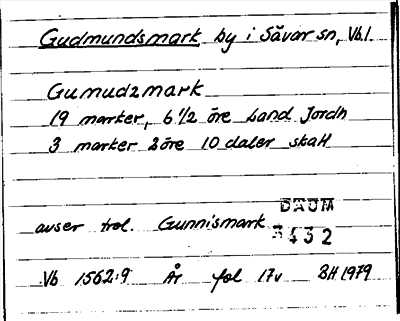 Gudmundsmark, by i Sävar sn, Vb.l.
Gumudzmark
19 marker, 6 1/2 öre Land Jordh
3 marker 2 öre 10 daler skatt
DAUM
avser trol. Gunnismark 3432
Vb 1562:9 År fol 17v BH 1979